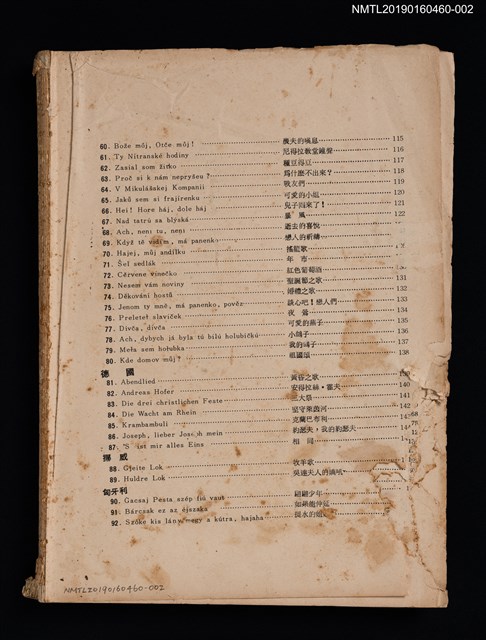 NMTL20190160460-002
60. Bože môj, Otče môj! 農夫的嘆息 115
61. Ty Nitranské hodiny 尼得拉教堂鐘聲 116
62. Zasial som žitko 種豆得豆 117
63. Proč si k nám neprÿšeu? 為什麼不出來? 118
64. V Mikulášskej Kompanii 戰友們 119
65. Jakú sem si frajírenku 可愛的小姐 120
66. Hei! Hore háj, dole háj 兒子回來了! 121
67. Nad tatrú sa blýská 暴風 122
68. Ach, není tu, není 逝去的喜悅
69. Když tě vidím, má panenko 戀人的祈禱
70. Hajej, můj andílku 搖籃歌
71. Šel sedlák 年市
72. Červene vinečko 紅色葡萄酒
73. Nesem vám noviny 聖誕節之歌 131
74. Děkování hostů 婚禮之歌 132
75. Jenom ty mně, má panenko, pověz 談心吧!戀人們 133
76. Preleteť slavíček 夜鶯 134
77. Dívča, dívča 可愛的燕子 135
78. Ach, dybych já byla tú bilú holubičkú 小鴿子 136
79. Meľa sem holubka 我的鴿子 137
80. Kde domov můj? 祖國頌 138
德國
81. Abendlied 黃昏之歌
82. Andreas Hofer 安得烈絲・霍夫 140
83. Die drei christlichen Feste 三大祭 141
84. Die Wacht am Rhein 堅守萊茵河 142
85. Krambambuli 克蘭巴布利
86. Joseph, lieber Joseph mein 約瑟夫,我的約瑟夫
87. 'S ist mir alles Eins 相同
挪威
88. Gjeite Lok 牧羊歌
89. Huldre Lok
匈牙利
90. Gacsaj Pésta szép fiú vaut 翩翩少年
91. Bárcsak ez az éjszaka
92. Szőke kis lány, egy a kútra, hajaha
NMTL20190160460-002